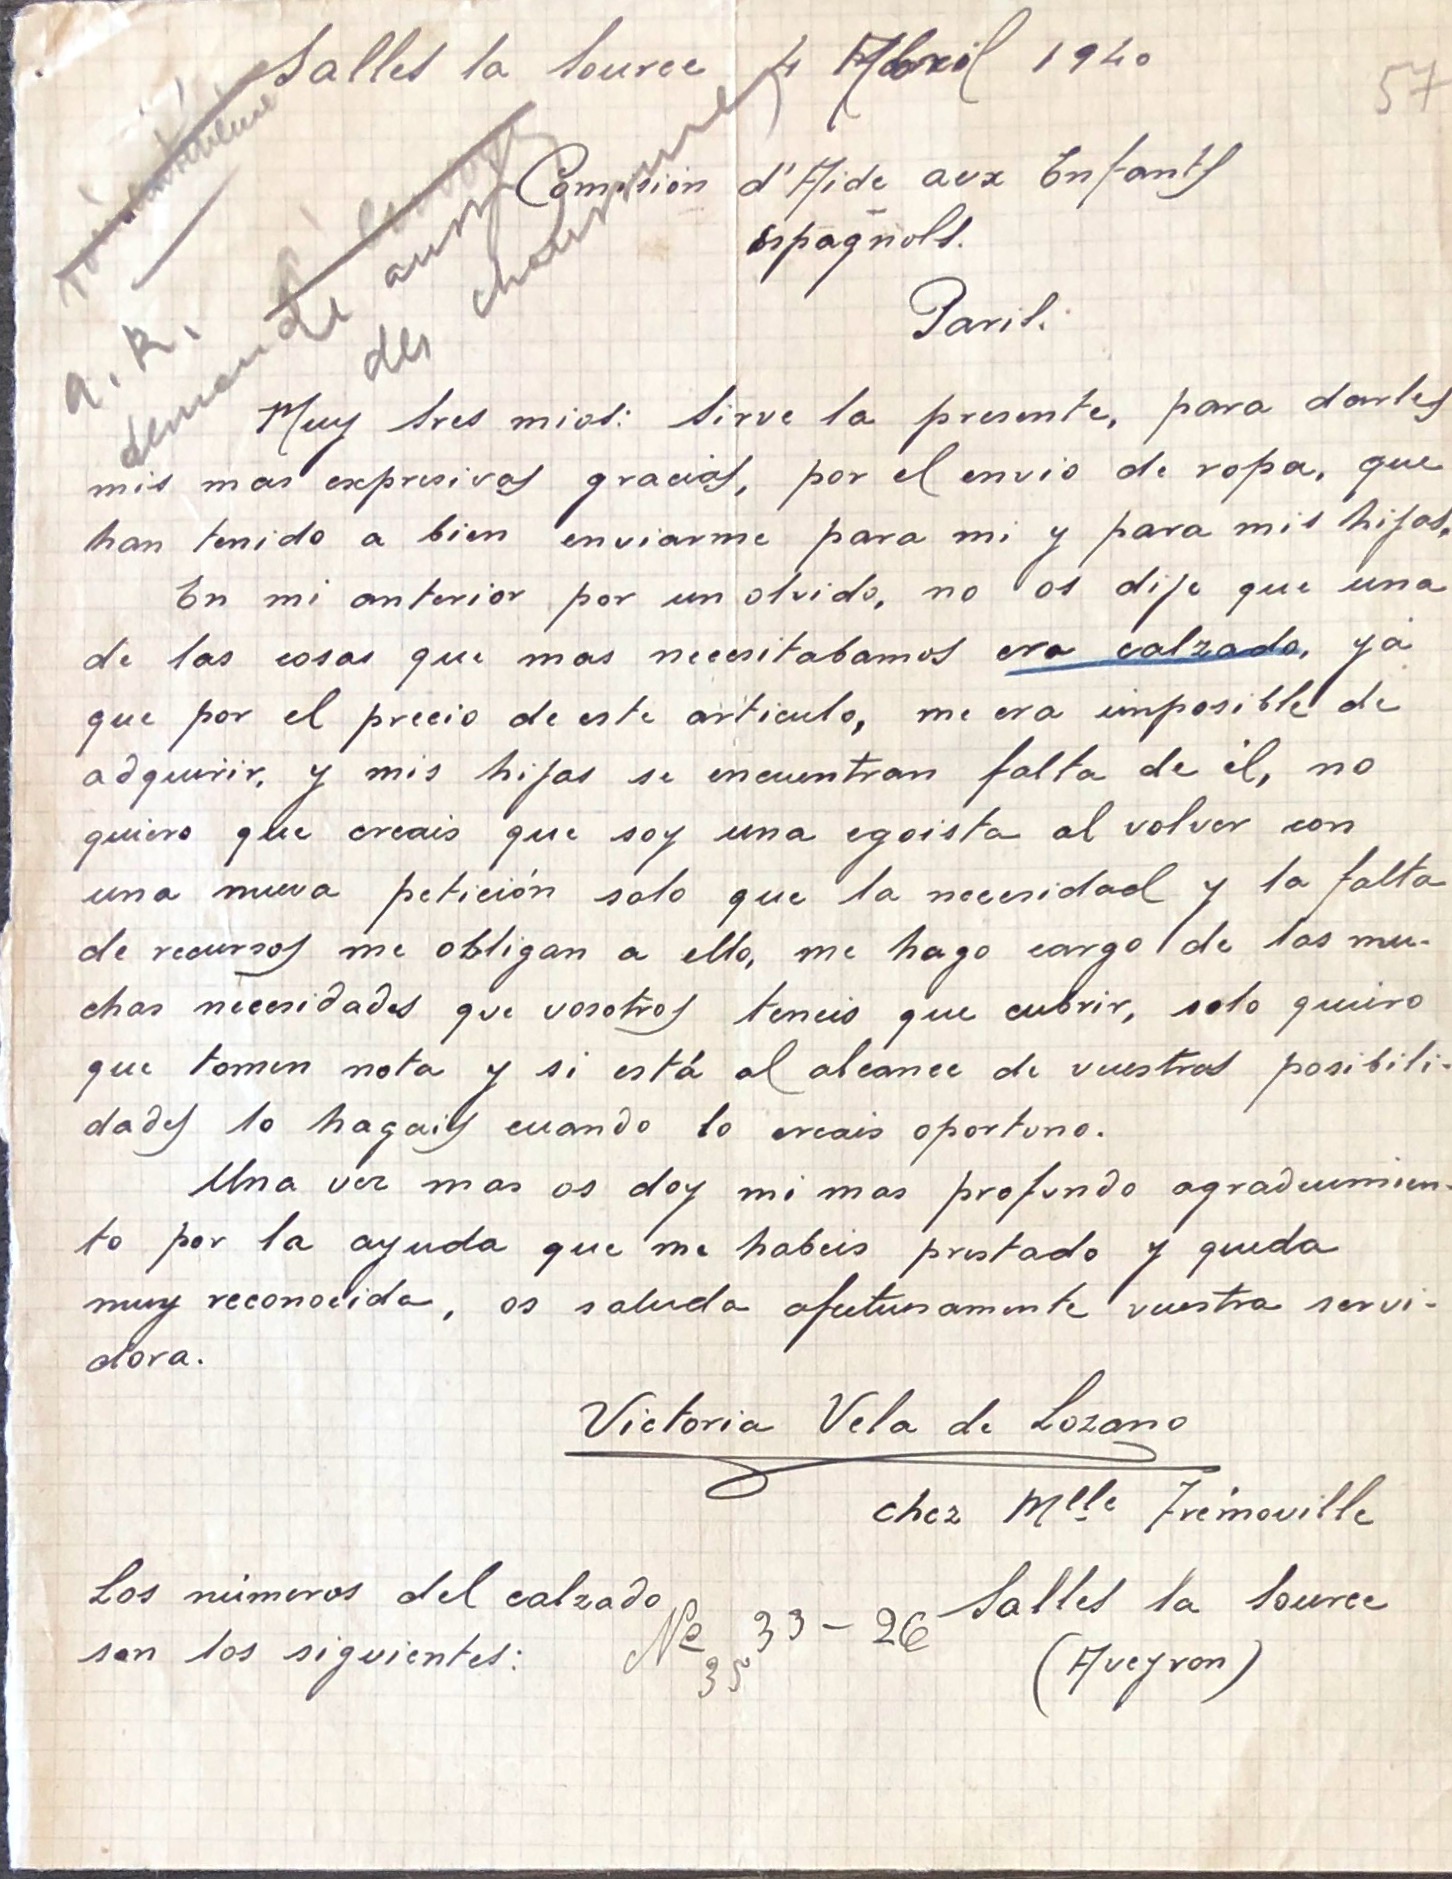 Salles la Source 4 Abril 1940
57
Comisión d'Aide aux Enfants
espagnols.
Paris.
a. R.
demande aussi
des chaussures
Muy Sres mios: Sirve la presente, para darles
mis mas expresivas gracias, por el envio de ropa, que
han tenido a bien enviarme para mi y para mis hijas.
En mi anterior por un olvido, no os dije que una
de las cosas que mas necesitabamos era calzado, yá
que por el precio de este articulo, me era imposible de
adquirir, y mis hijas se encuentran falta de él, no
quiero que creais que soy una egoista al volver con
una nueva petición solo que la necesidad y la falta
de recursos me obligan a ello, me hago cargo de las mu-
chas necesidades que vosotros teneis que cubrir, solo quiero
que tomen nota y si está al alcance de vuestras posibili-
dades lo hagais cuando lo creais oportuno.
Una vez mas os doy mi mas profundo agradecimien-
to por la ayuda que me habeis prestado y queda
muy reconocida, os saluda afectuosamente vuestra servi-
dora.
Victoria Vela de Lozano
chez Mlle Trémoville
Los números del calzado
son los siguientes:
Nº 33-26
35
Salles la Source
(Aveyron)